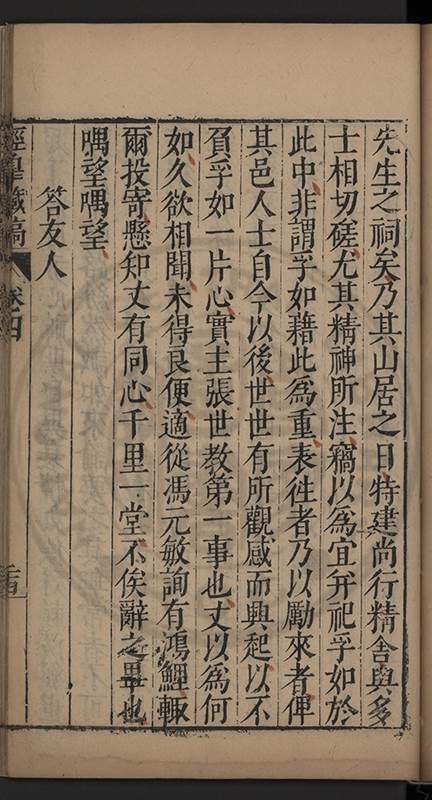 先生之祠矣乃其山居之日特建尚行精舍與多
士相切磋尤其精神所注竊以為宜并祀孚如於
此中非謂孚如藉此為重表徃者乃以勵來者俾
其邑人士自今以後世世有所觀感而興起以不
負孚如一片心實主張世教第一事也丈以為何
如久欲相聞未得良便適從馮元敏詢有鴻鯉輙
爾投寄懸知丈有同心千里一堂不俟辭之畢也
喁望喁望
答友人
涇臯藏稿
卷四